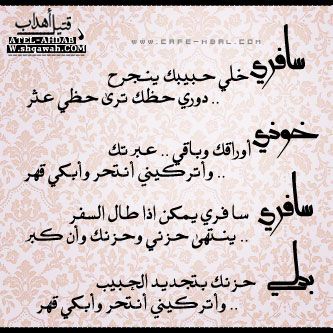 قتيل أهداب
ATEL-AHDAB
W.shqawah.COM
www.CAFE-HBAL.COM
سافري خلي حبيبك ينجرح
.. دوري حظك ترى حظي عثر
خوذي أوراقك وباقي .. عبرتك
.. وأتركيني أنتحر وأبكي قهر
سافري سافري يمكن اذا طال السفر
.. ينتهي حزني وحزنك وأن كبر
بدلي حزنك بتجديد الحبيب
.. وأتركيني أنتحر وأبكي قهر